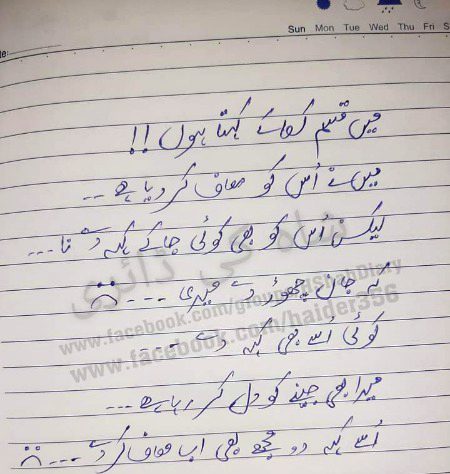 te:
Sun Mon Tue Wed Thu Fri S
میں قسم کھا کے کہتا ہوں !!
میں نے اُس کو معاف کر دیا ہے ---
لیکن اُس کو بھی کوئی جا کے کہہ دے نا ---
کہ جان چھوڑ دے میری --- ☹
کوئی اُسے بھی کہہ دے ---
میرا بھی جینے کو دل کر رہا ہے ---
اُسے کہہ دو مجھے بھی اب معاف کر دے --- ☹
شاہ کی ڈائری
www.facebook.com/groups/shahDiary
www.facebook.com/haider356